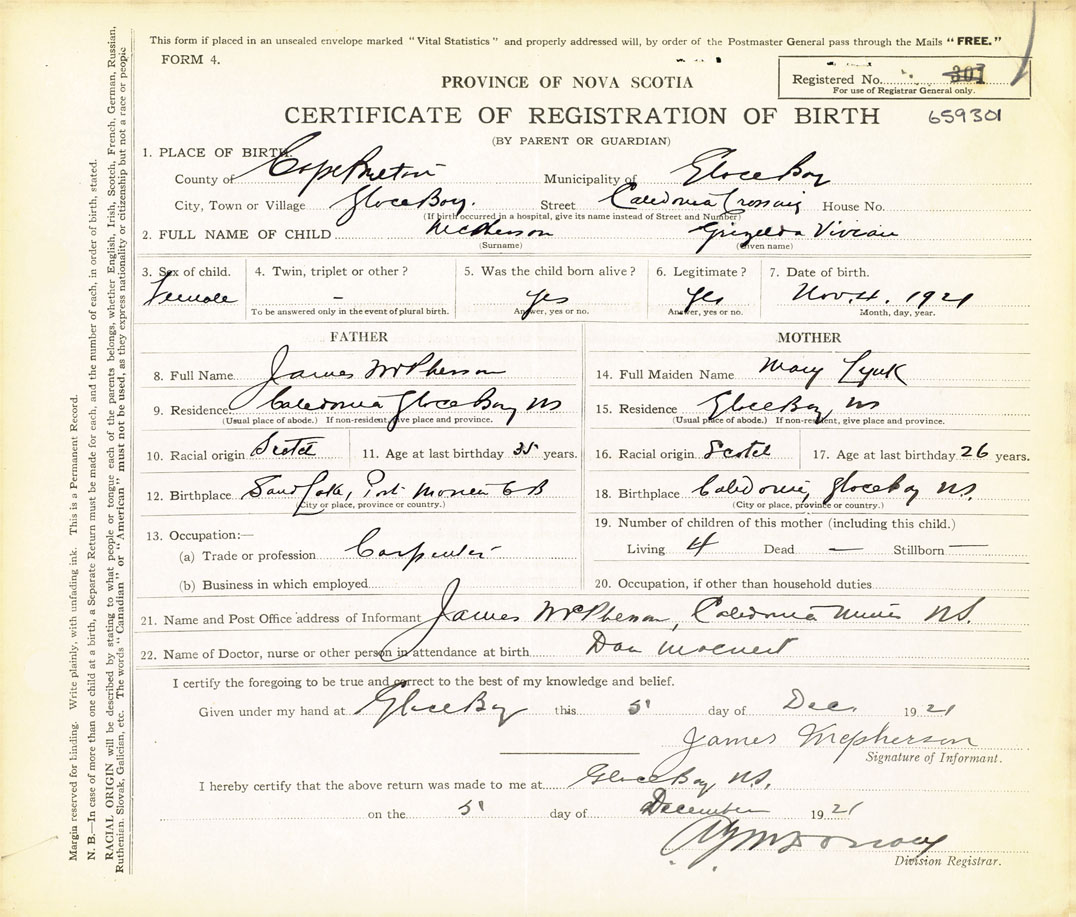 This form if placed in an unsealed envelope marked "Vital Statistics" and properly addressed will, by order of the Postmaster General pass through the Mails "FREE."
FORM 4.
PROVINCE OF NOVA SCOTIA
Registered No. 301
For use of Registrar General only.
CERTIFICATE OF REGISTRATION OF BIRTH
659301
(BY PARENT OR GUARDIAN)
1. PLACE OF BIRTH.
County of Cape Breton Municipality of Glace Bay
City, Town or Village Glace Bay. Street Caledonia Crossing House No.
(If birth occurred in a hospital, give its name instead of Street and Number)
2. FULL NAME OF CHILD McPherson Grizelda Vivian
(Surname) (Given name)
3. Sex of child. 4. Twin, triplet or other? 5. Was the child born alive? 6. Legitimate? 7. Date of birth.
Female – Yes Yes Nov. 4. 1921
To be answered only in the event of plural birth. Answer, yes or no. Answer, yes or no. Month, day, year.
FATHER MOTHER
8. Full Name James McPherson 14. Full Maiden Name Mary Lynk
9. Residence Caledonia Glace Bay NS 15. Residence Glace Bay NS
(Usual place of abode.) If non-resident, give place and province. (Usual place of abode.) If non-resident, give place and province.
10. Racial origin Scotch 11. Age at last birthday 35 years. 16. Racial origin Scotch 17. Age at last birthday 26 years.
12. Birthplace Sand Lake, Port Morien CB 18. Birthplace Caledonia, Glace Bay NS.
(City or place, province or country.) (City or place, province or country.)
13. Occupation:— 19. Number of children of this mother (including this child.)
(a) Trade or profession Carpenter Living 4 Dead — Stillborn —
(b) Business in which employed 20. Occupation, if other than household duties
21. Name and Post Office address of Informant James McPherson, Caledonia Mines NS.
22. Name of Doctor, nurse or other person in attendance at birth Dan
I certify the foregoing to be true and correct to the best of my knowledge and belief.
Given under my hand at Glace Bay this 5 day of Dec. 1921
James McPherson
Signature of Informant.
I hereby certify that the above return was made to me at Glace Bay NS.
on the 5 day of December 1921
Division Registrar.
Margin reserved for binding. Write plainly, with unfading ink. This is a Permanent Record.
N. B.—In case of more than one child at a birth, a Separate Return must be made for each, and the number of each, in order of birth, stated.
RACIAL ORIGIN will be described by stating to what people or tongue each of the parents belongs, whether English, Irish, Scotch, French, German, Russian,
Ruthenian, Slovak, Galician, etc. The words "Canadian" or "American" must not be used, as they express nationality or citizenship but not a race or people